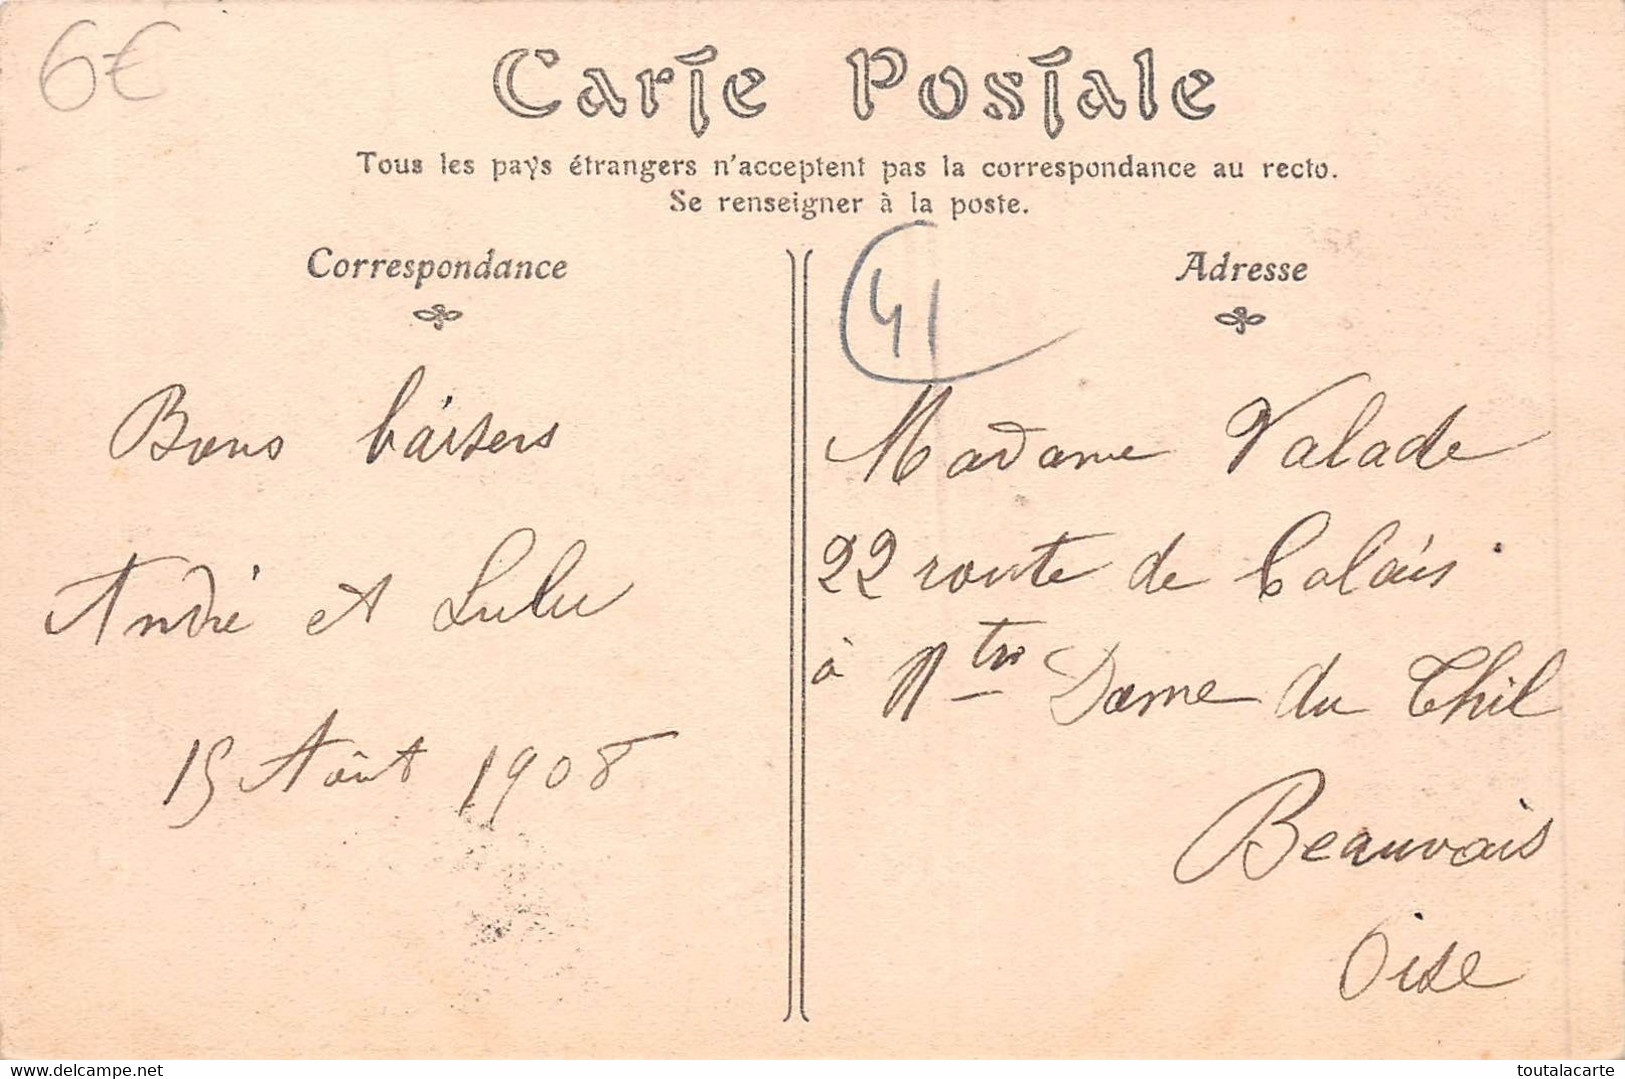 6€
Carte Postale
Tous les pays étrangers n'acceptent pas la correspondance au recto.
Se renseigner à la poste.
Correspondance
Bons baisers
André et Lulu
15 Août 1908
41
Adresse
Madame Valade
22 route de Calais
à Ntre Dame du Thil
Beauvais
Oise
delcampe.net
toutalacarte